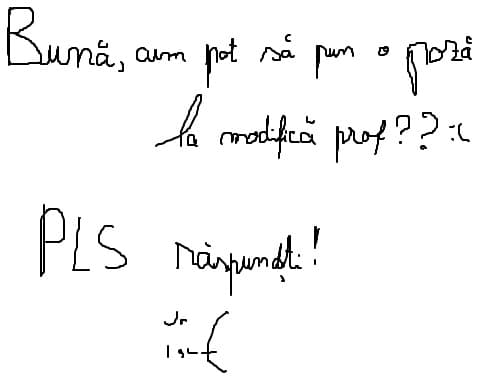 Bună, cum pot să pun o poză
la modifică prof?? :(
PLS răspundți!